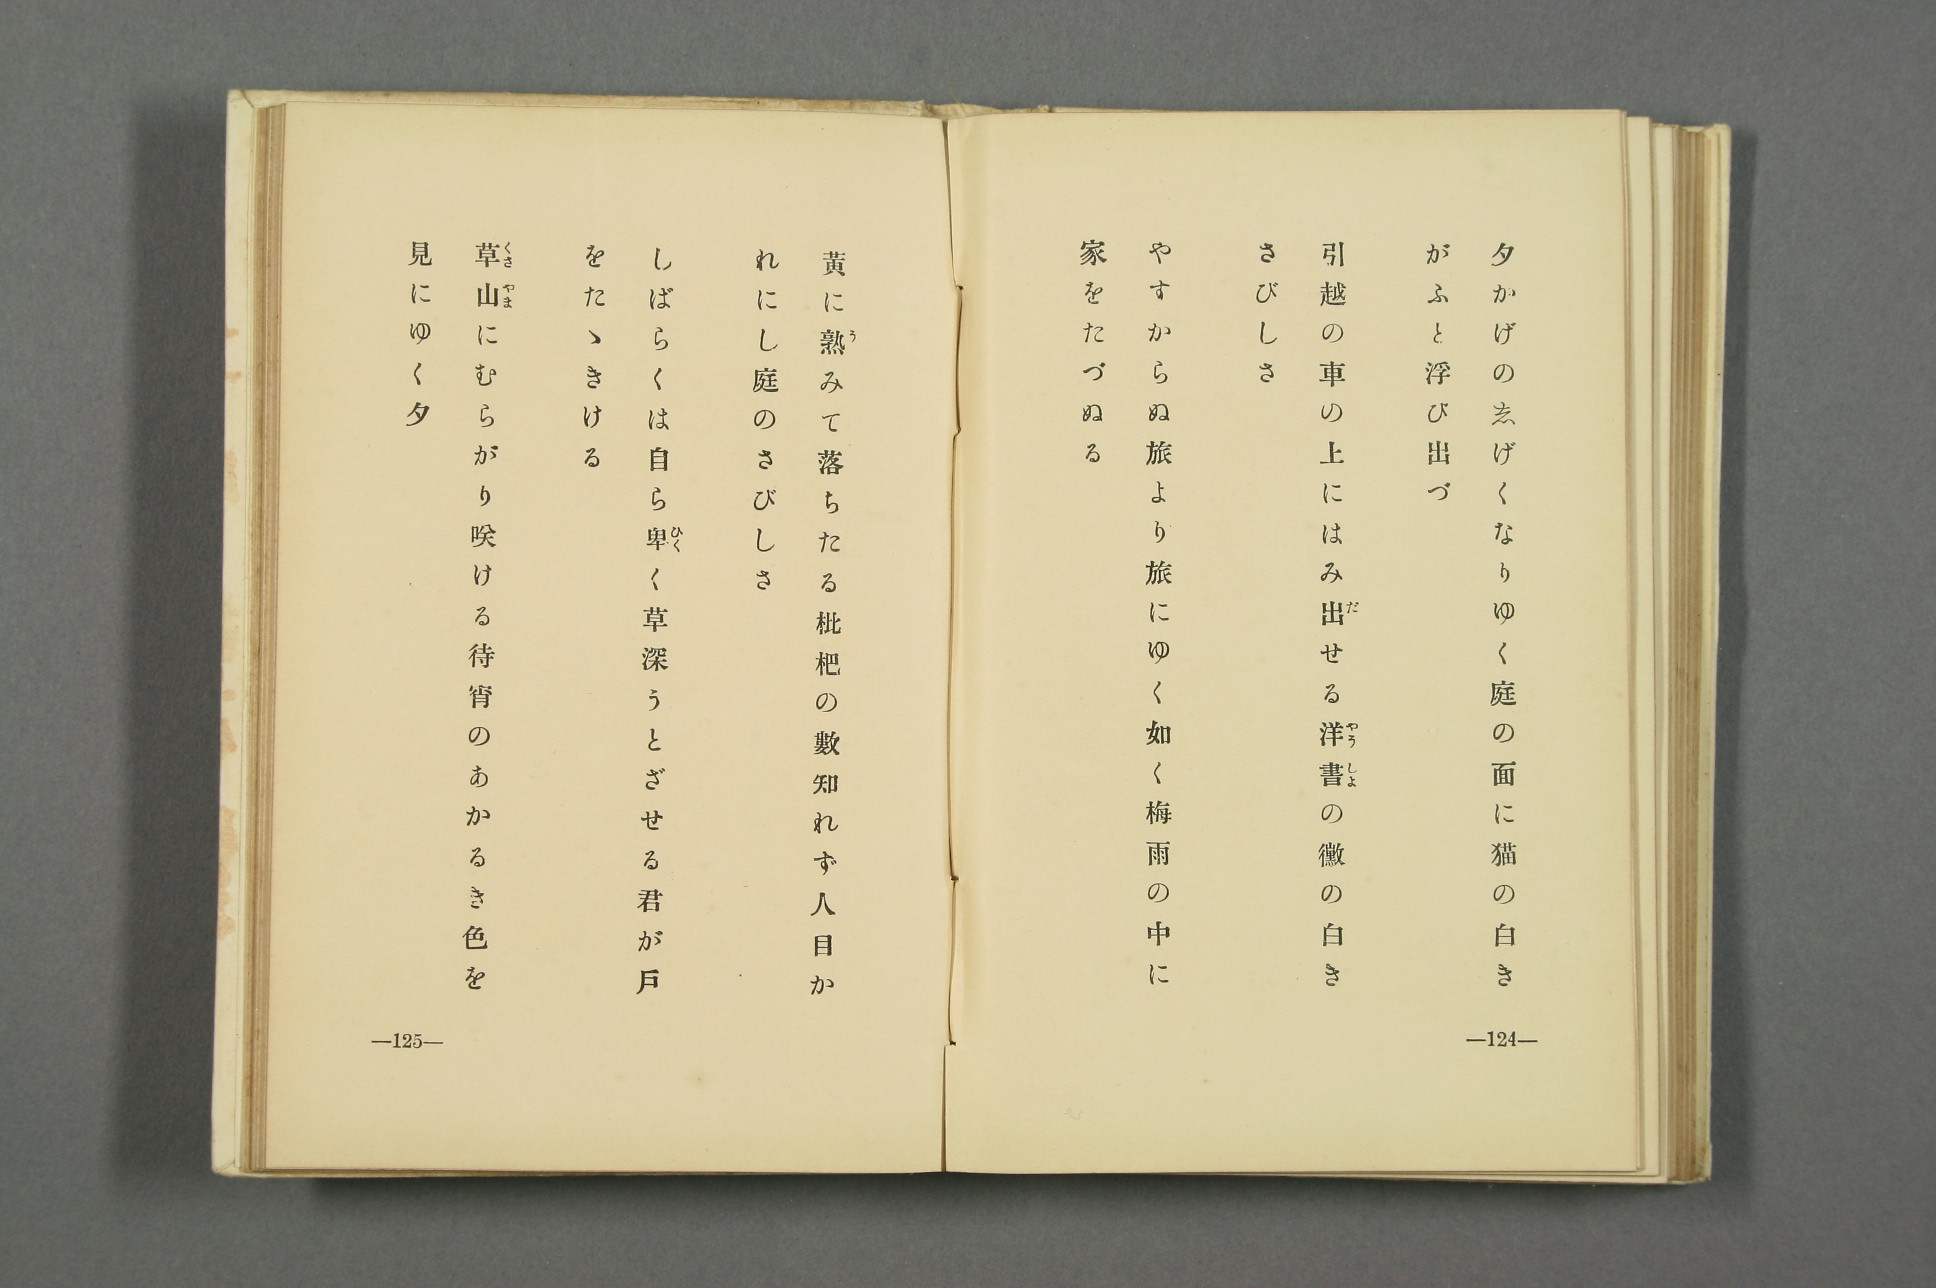 夕かげのゑげくなりゆく庭の面に猫の白き
がふと浮び出づ
引越の車の上にはみ出せる洋書の黴の白き
さびしさ
やすからぬ旅より旅にゆく如く梅雨の中に
家をたづぬる
—124—
黄に熟みて落ちたる枇杷の數知れず人目か
れにし庭のさびしさ
しばらくは自ら卑く草深うとざせる君が戸
をたゝきける
草山にむらがり咲ける待宵のあかるき色を
見にゆく夕
—125—